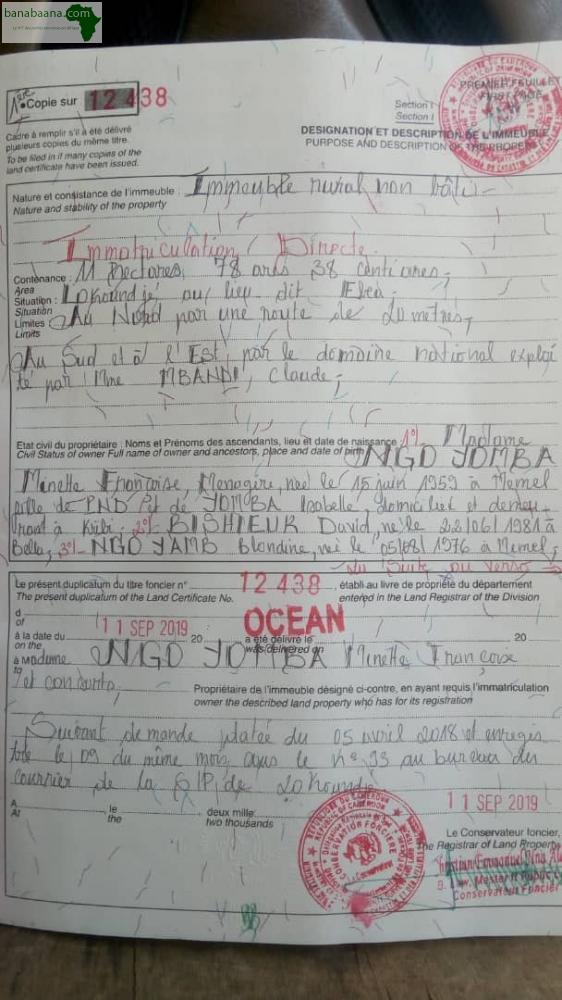 banabaana.com
1ère Copie sur 12438
Cadre à remplir s'il a été délivré
plusieurs copies du même titre.
To be filed in if many copies of the
land certificate have been issued.
PREMIER FEUILLET
FIRST PAGE
Section I
Section I
DESIGNATION ET DESCRIPTION DE L'IMMEUBLE
PURPOSE AND DESCRIPTION OF THE PROPERTY
Nature et consistance de l'immeuble : Immeuble rural non bâti -
Nature and stability of the property
Immatriculation Directe
Contenance : 11 hectares, 78 ares 38 centiares ;
Area
Situation : Lokoundjé au lieu dit
Situation
Limites Au Nord par une route de 20 metres,
Limits
Au Sud et à l'Est, par le domaine national exploi
té par Mme MBANDI, Claude ;
Etat civil du propriétaire : Noms et Prénoms des ascendants, lieu et date de naissance 1°/- Madame
Civil Status of owner Full name of owner and ancestors, place and date of birth NGO JOMBA
Minette Françoise, Menagère, née le 15 juin 1959 à Memel
fille de et de JOMBA Isabelle, domiciliée et demeu-
rant à Kribi ; 2°/- BISHIEUK David, né le 22/06/1981 à
3°/- NGO YAMB Blondine, née le 05/08/1976 à Memel ;
La Suite au verso
Le présent duplicatum du titre foncier n° 12438 établi au livre de propriété du département
The present duplicatum of the Land Certificate No. entered in the Land Registrar of the Division
d OCEAN
of
à la date du 11 SEP 2019 20 a été délivré le 20
on the was delivered on
à Madame NGO JOMBA Minette Françoise
to
et consorts Propriétaire de l'immeuble désigné ci-contre, en ayant requis l'immatriculation
owner the described land property who has for its registration
Suivant demande datée du 05 avril 2018 et enregis
trée le 09 du même mois sous le n° 93 au bureau du
courrier de la de Lokoundjé
A le deux mille 11 SEP 2019
At the two thousands
Le Conservateur foncier,
The Registrar of Land Property
Conservateur Foncier
CONSERVATION FONCIERE